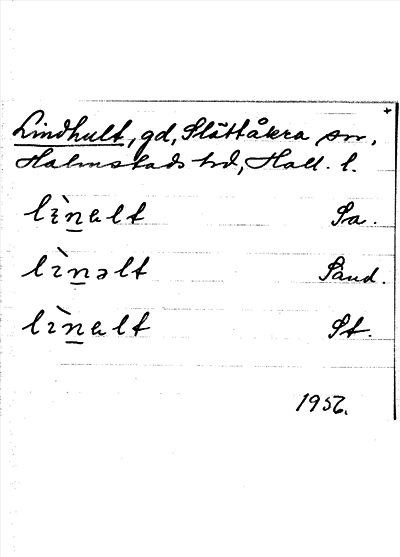 Lindhult, gd, Slättåkra sn,
Halmstads hd, Hall. l.
lìn̲ɐlt Sa.
lìn̲əlt Sand.
lìn̲ɐlt St.
1956.